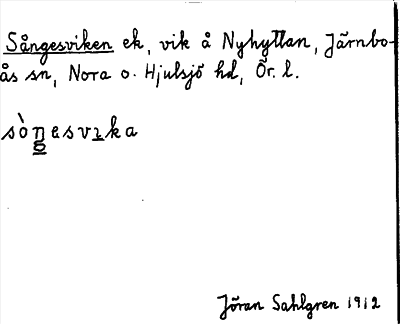 Sångesviken ek, vik å Nyhyttan, Järnbo-
ås sn, Nora o. Hjulsjö hd, Ör. l.
sò̀ŋesvɪka
Jöran Sahlgren 1912